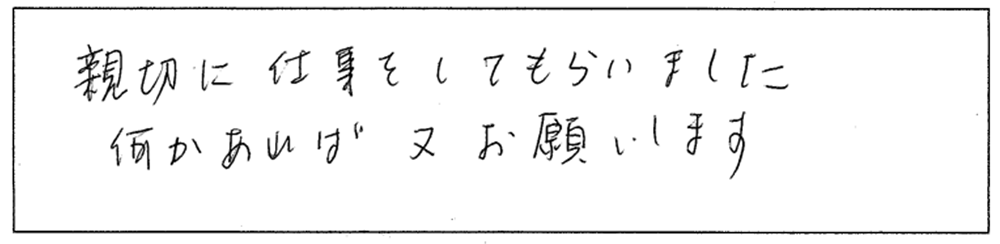 親切に仕事をしてもらいました
何かあれば又お願いします